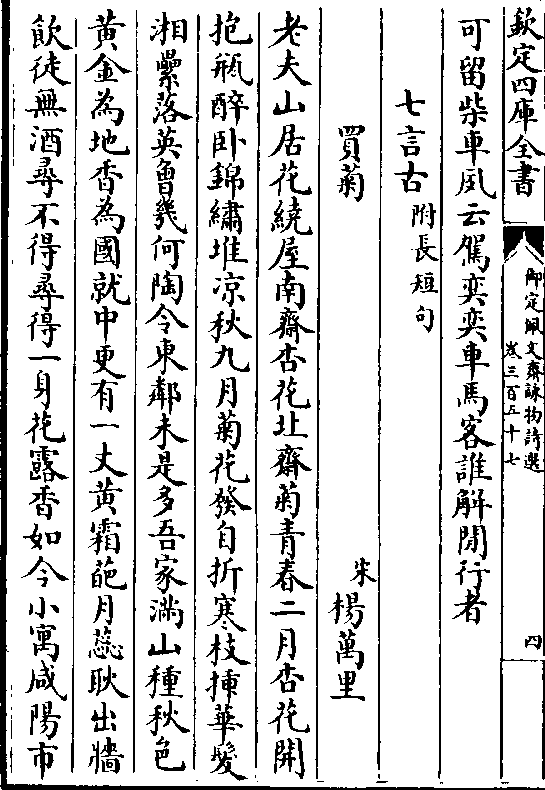 欽定四庫全書
御定佩文齋詠物詩選
卷三百五十七
四
可留柴車風云駕奕奕車馬客誰解閒行者
七言古附長短句
買菊
宋楊萬里
老夫山居花繞屋南齋杏花北齋菊青春二月杏花開
抱瓶醉卧錦繡堆凉秋九月菊花發自折寒枝揷華髮
湘纍落英曾幾何陶令東鄰未是多吾家滿山種秋色
黄金為地香為國就中更有一丈黄霜葩月蕊耿出牆
飲徒無酒尋不得尋得一身花露香如今小寓咸陽市